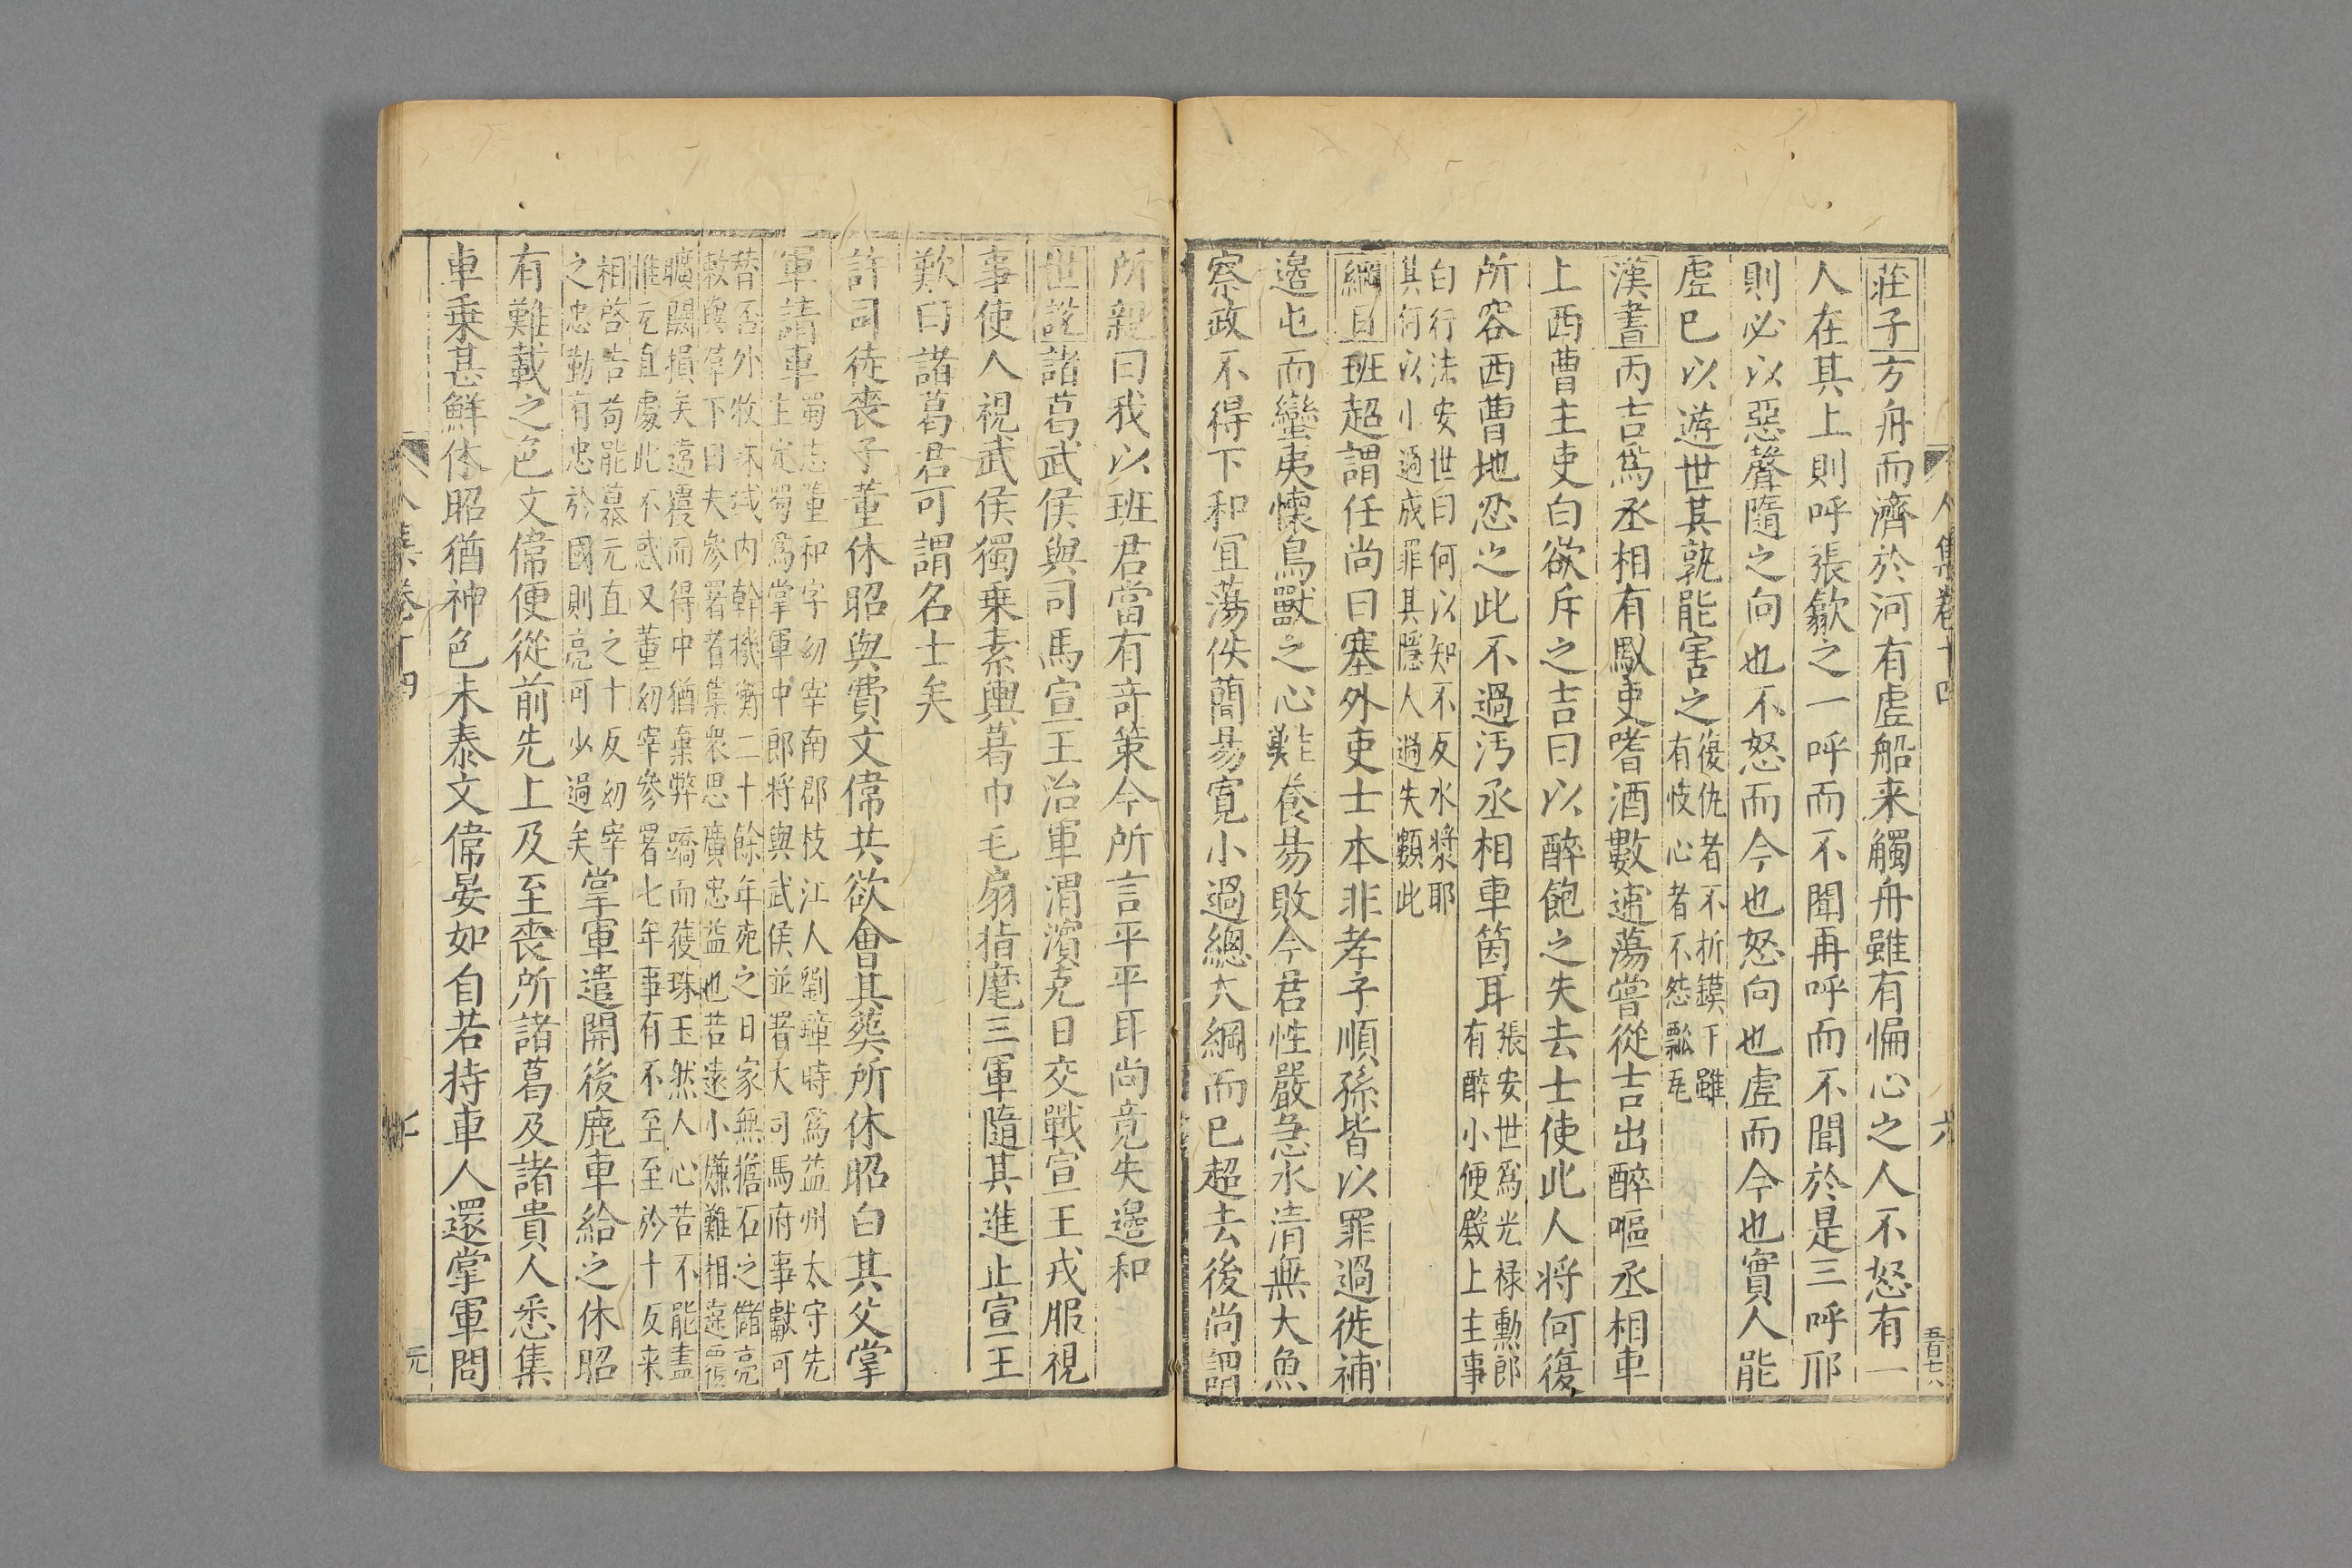 莊子方舟而濟於河有虛船来觸舟雖有惼心之人不怒有一
人在其上則呼張歙之一呼而不聞再呼而不聞於是三呼邪
則必以惡聲隨之向也不怒而今也怒向也虛而今也實人能
虛己以遊世其孰能害之復仇者不折鏌干雖
有忮心者不怨飄瓦
漢書丙吉爲丞相有馭吏嗜酒數逋蕩嘗從吉出醉嘔丞相車
上西曹主吏白欲斥之吉曰以醉飽之失去士使此人将何復
所容西曹地忍之此不過汚丞相車茵耳張安世爲光禄勲郎
有醉小便殿上主事
白行法安世曰何以知不反水漿耶
其何以小過成罪其隱人過失類此
綱目班超謂任尚曰塞外吏士本非孝子順孫皆以罪過徙補
邊屯而蠻夷懷鳥獸之心難養易敗今君性嚴急水清無大魚
察政不得下和宜蕩佚蕳易寬小過總大綱而已超去後尚謂
人集卷十四
六
五百七六
所親曰我以班君當有竒策今所言平平耳尚竟失邊和
世說諸葛武侯與司馬宣王治軍渭濱克日交戰宣王戎服視
事使人視武侯獨乗素輿葛巾毛扇指麾三軍隨其進止宣王
歎曰諸葛君可謂名士矣
許司徒喪子董休昭與費文偉共欲會其葬所休昭白其父掌
軍請車蜀志董和字幼宰南郡枝江人劉璋時爲益州太守先
主定蜀爲掌軍中郎将與武侯並署大司馬府事獻可
替否外牧殊域内幹機衡二十餘年死之日家無擔石之儲亮
敕與羣下曰夫參署者集衆思廣忠益也若遠小嫌難相違覆
曠闕損矣違覆而得中猶棄弊蹻而獲珠玉然人心苦不能盡
惟元直處此不惑又董幼宰參署七年事有不至至於十反来
相啓告苟能慕元直之十反幼宰
之忠勤有忠於國則亮可少過矣掌軍遣開後鹿車給之休昭
有難載之色文偉便從前先上及至喪所諸葛及諸貴人悉集
車乗甚鮮休昭猶神色未泰文偉晏如自若持車人還掌軍問
人集卷十四
七
元